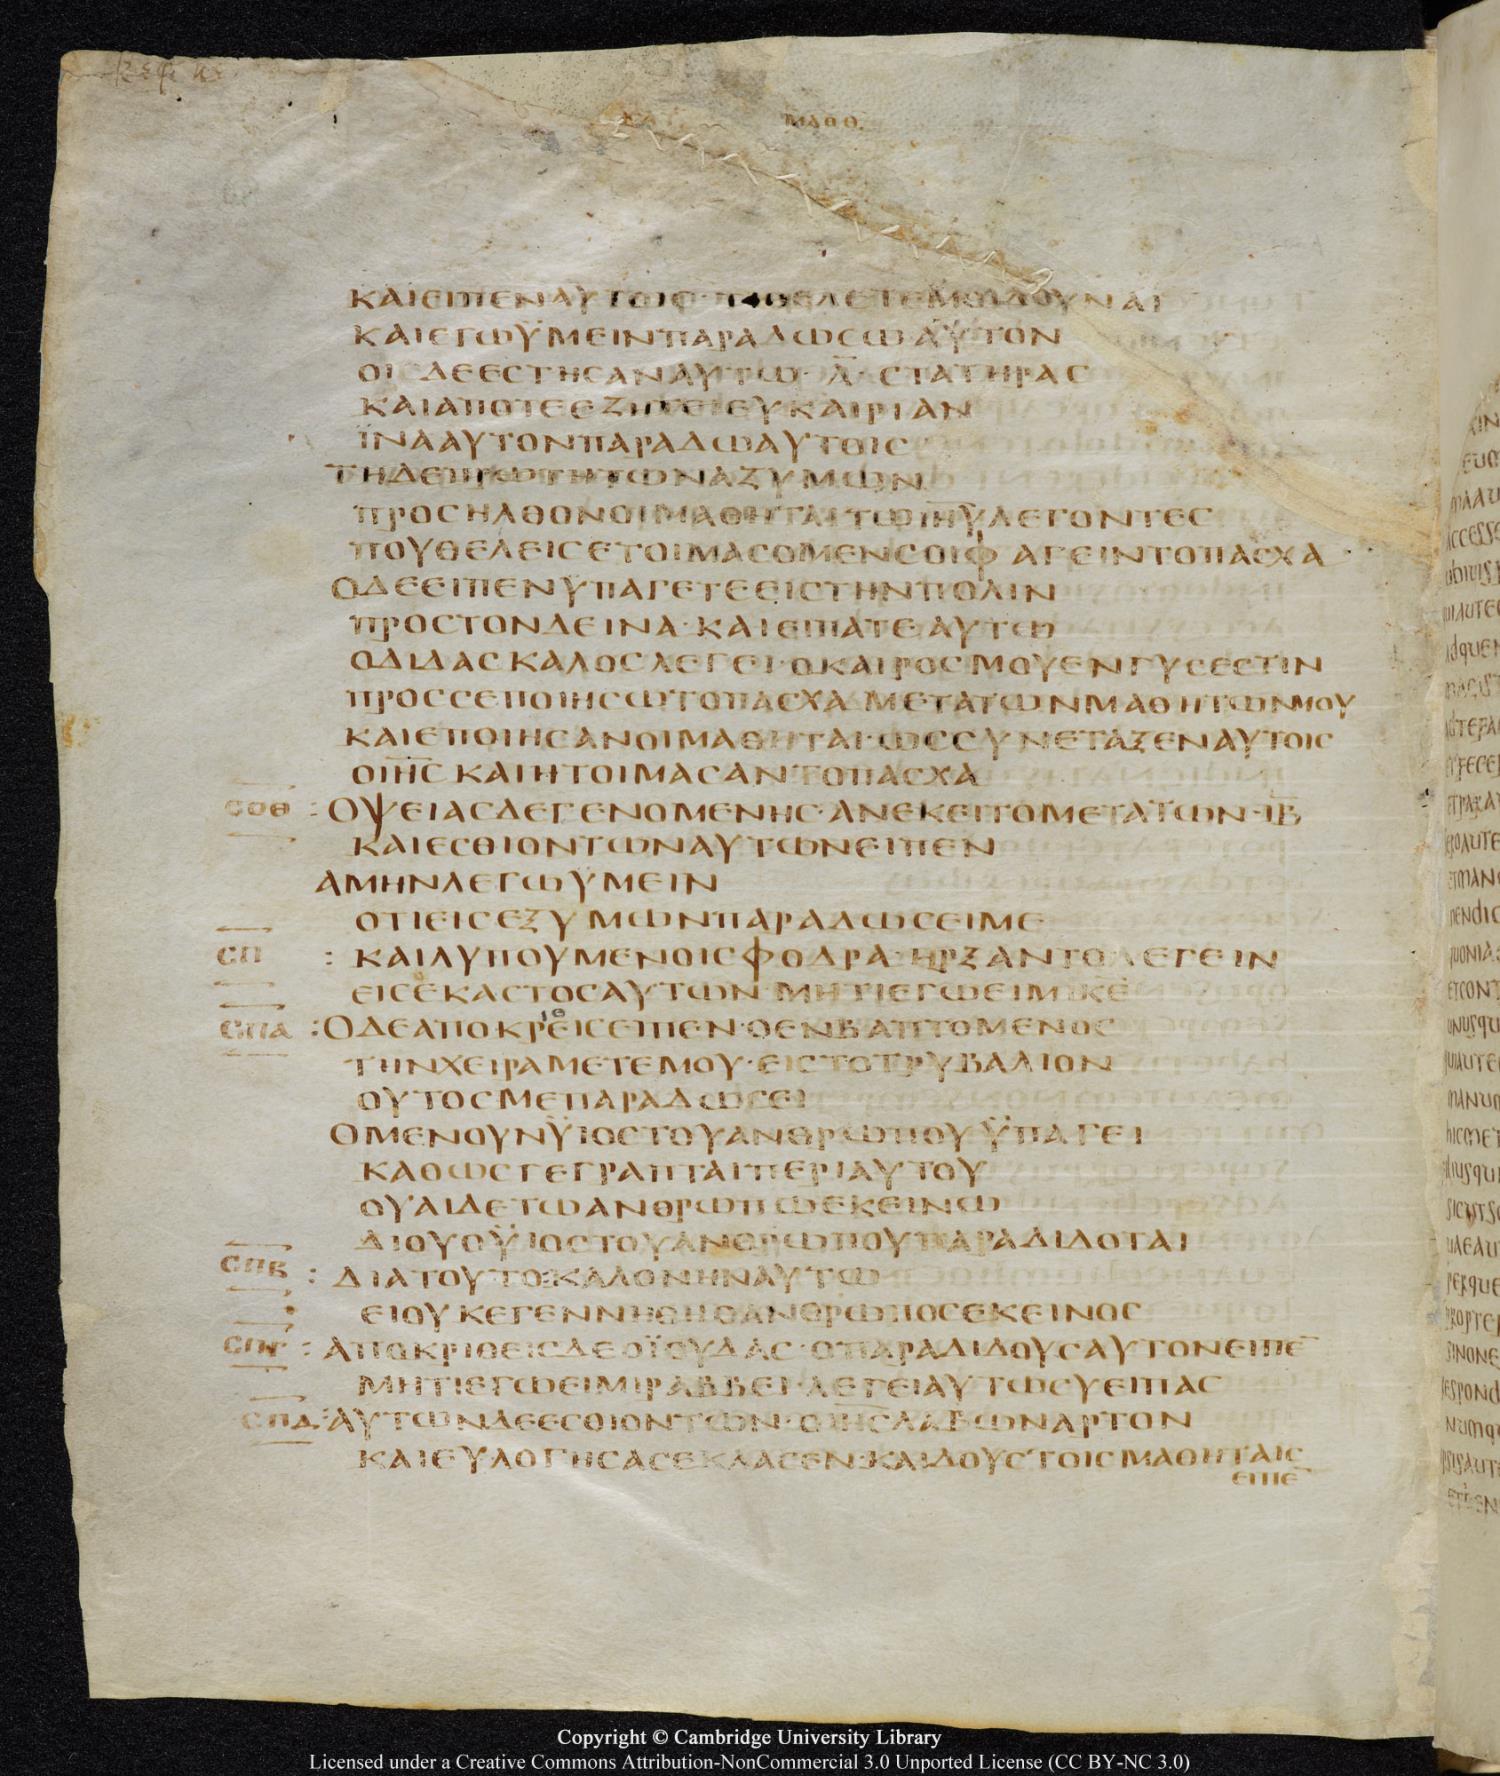 ΜΑΘΘ.
ΚΑΙΕΙΠΕΝΑΥΤΟΙϹ ΤΙΘΕΛΕΤΕΜΟΙΔΟΥΝΑΙ
ΚΑΙΕΓΩΫΜΕΙΝΠΑΡΑΔΩϹΩΑΥΤΟΝ
ΟΙΔΕΕϹΤΗϹΑΝΑΥΤΩ·Λ̅·ϹΤΑΤΗΡΑϹ
ΚΑΙΑΠΟΤΕΕΖΗΤΕΙΕΥΚΑΙΡΙΑΝ
ΪΝΑΑΥΤΟΝΠΑΡΑΔΩΑΥΤΟΙϹ
ΤΗΔΕΠΡΩΤΗΤΩΝΑΖΥΜΩΝ
ΠΡΟϹΗΛΘΟΝΟΙΜΑΘΗΤΑΙΤΩΙΗΥ̅ΛΕΓΟΝΤΕϹ
ΠΟΥΘΕΛΕΙϹΕΤΟΙΜΑϹΟΜΕΝϹΟΙΦΑΓΕΙΝΤΟΠΑϹΧΑ
ΟΔΕΕΙΠΕΝΫΠΑΓΕΤΕΕΙϹΤΗΝΠΟΛΙΝ
ΠΡΟϹΤΟΝΔΕΙΝΑ·ΚΑΙΕΙΠΑΤΕΑΥΤΩ
ΟΔΙΔΑϹΚΑΛΟϹΛΕΓΕΙ·ΟΚΑΙΡΟϹΜΟΥΕΝΓΥϹΕϹΤΙΝ
ΠΡΟϹϹΕΠΟΙΗϹΩΤΟΠΑϹΧΑ ΜΕΤΑΤΩΝΜΑΘΗΤΩΝΜΟΥ
ΚΑΙΕΠΟΙΗϹΑΝΟΙΜΑΘΗΤΑΙ·ΩϹϹΥΝΕΤΑΞΕΝΑΥΤΟΙϹ
ΟΙΗϹ̅ΚΑΙΗΤΟΙΜΑϹΑΝΤΟΠΑϹΧΑ
ϹΟΘ :ΟΨΕΙΑϹΔΕΓΕΝΟΜΕΝΗϹ·ΑΝΕΚΕΙΤΟΜΕΤΑΤΩΝ·ΙΒ̅
ΚΑΙΕϹΘΙΟΝΤΩΝΑΥΤΩΝΕΙΠΕΝ
ΑΜΗΝΛΕΓΩΫΜΕΙΝ
ΟΤΙΕΙϹΕΞΥΜΩΝΠΑΡΑΔΩϹΕΙΜΕ
ϹΠ :ΚΑΙΛΥΠΟΥΜΕΝΟΙϹΦΟΔΡΑ·ΗΡΞΑΝΤΟΛΕΓΕΙΝ
ΕΙϹΕΚΑϹΤΟϹΑΥΤΩΝ·ΜΗΤΙΕΓΩΕΙΜΙΚΕ̅
ϹΠΑ :ΟΔΕΑΠΟΚΡΕΙϹΕΙΠΕΝ·ΟΕΝΒΑΠΤΟΜΕΝΟϹ
ΤΗΝΧΕΙΡΑΜΕΤΕΜΟΥ·ΕΙϹΤΟΤΡΥΒΑΛΙΟΝ
ΟΥΤΟϹΜΕΠΑΡΑΔΩϹΕΙ
ΟΜΕΝΟΥΝΫΙΟϹΤΟΥΑΝΘΡΩΠΟΥΫΠΑΓΕΙ
ΚΑΘΩϹΓΕΓΡΑΠΤΑΙΠΕΡΙΑΥΤΟΥ
ΟΥΑΙΔΕΤΩΑΝΘΡΩΠΩΕΚΕΙΝΩ
ΔΙΟΥΟΫΙΟϹΤΟΥΑΝΘΡΩΠΟΥΠΑΡΑΔΙΔΟΤΑΙ
ϹΠΒ :ΔΙΑΤΟΥΤΟ:ΚΑΛΟΝΗΝΑΥΤΩ
ΕΙΟΥΚΕΓΕΝΝΗΘΗΟΑΝΘΡΩΠΟϹΕΚΕΙΝΟϹ
ϹΠΓ :ΑΠΟΚΡΙΘΕΙϹΔΕΟΪΟΥΔΑϹ·ΟΠΑΡΑΔΙΔΟΥϹΑΥΤΟΝΕΙΠΕ̅
ΜΗΤΙΕΓΩΕΙΜΙΡΑΒΒΕΙ·ΛΕΓΕΙΑΥΤΩϹΥΕΙΠΑϹ
ϹΠΔ:ΑΥΤΩΝΔΕΕϹΘΙΟΝΤΩΝ·ΟΙΗϹ̅ΛΑΒΩΝΑΡΤΟΝ
ΚΑΙΕΥΛΟΓΗϹΑϹΕΚΛΑϹΕΝ:ΚΑΙΔΟΥϹΤΟΙϹΜΑΘΗΤΑΙϹ
ΕΙΠΕ̅
Copyright © Cambridge University Library
Licensed under a Creative Commons Attribution-NonCommercial 3.0 Unported License (CC BY-NC 3.0)